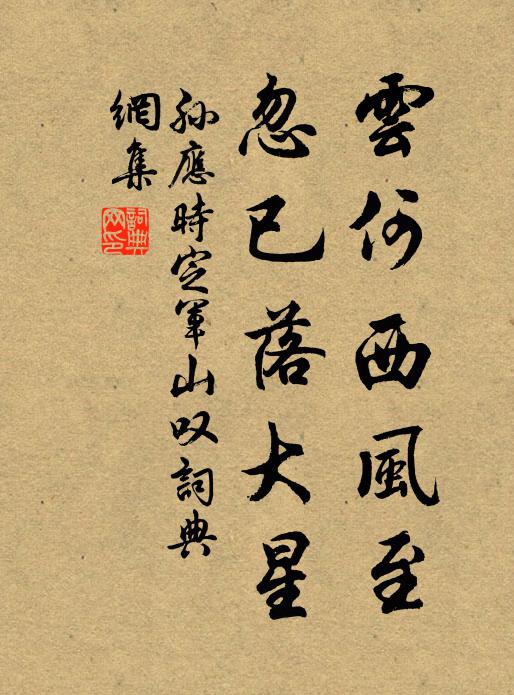 雲何西風至
忽已落大星
孫應時定軍山叹詞典
網集
詞典
网印